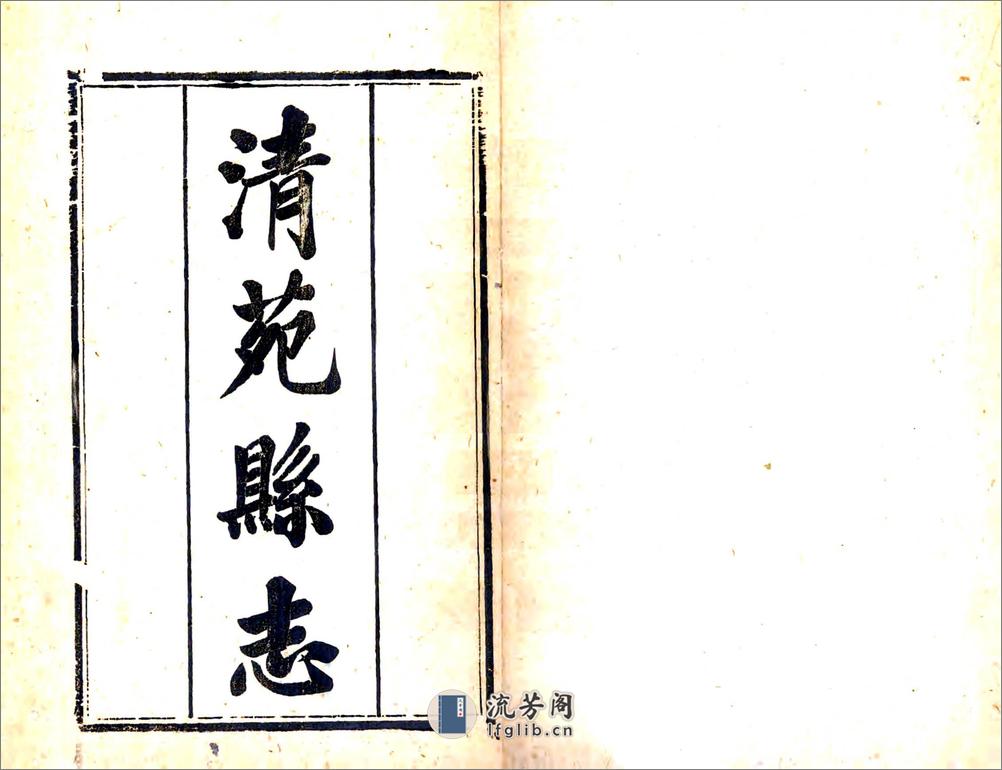 清苑縣志
流芳阁
lfglib.cn